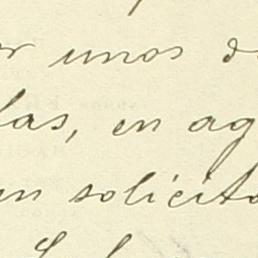 r unos d
las, en ag
un solicita